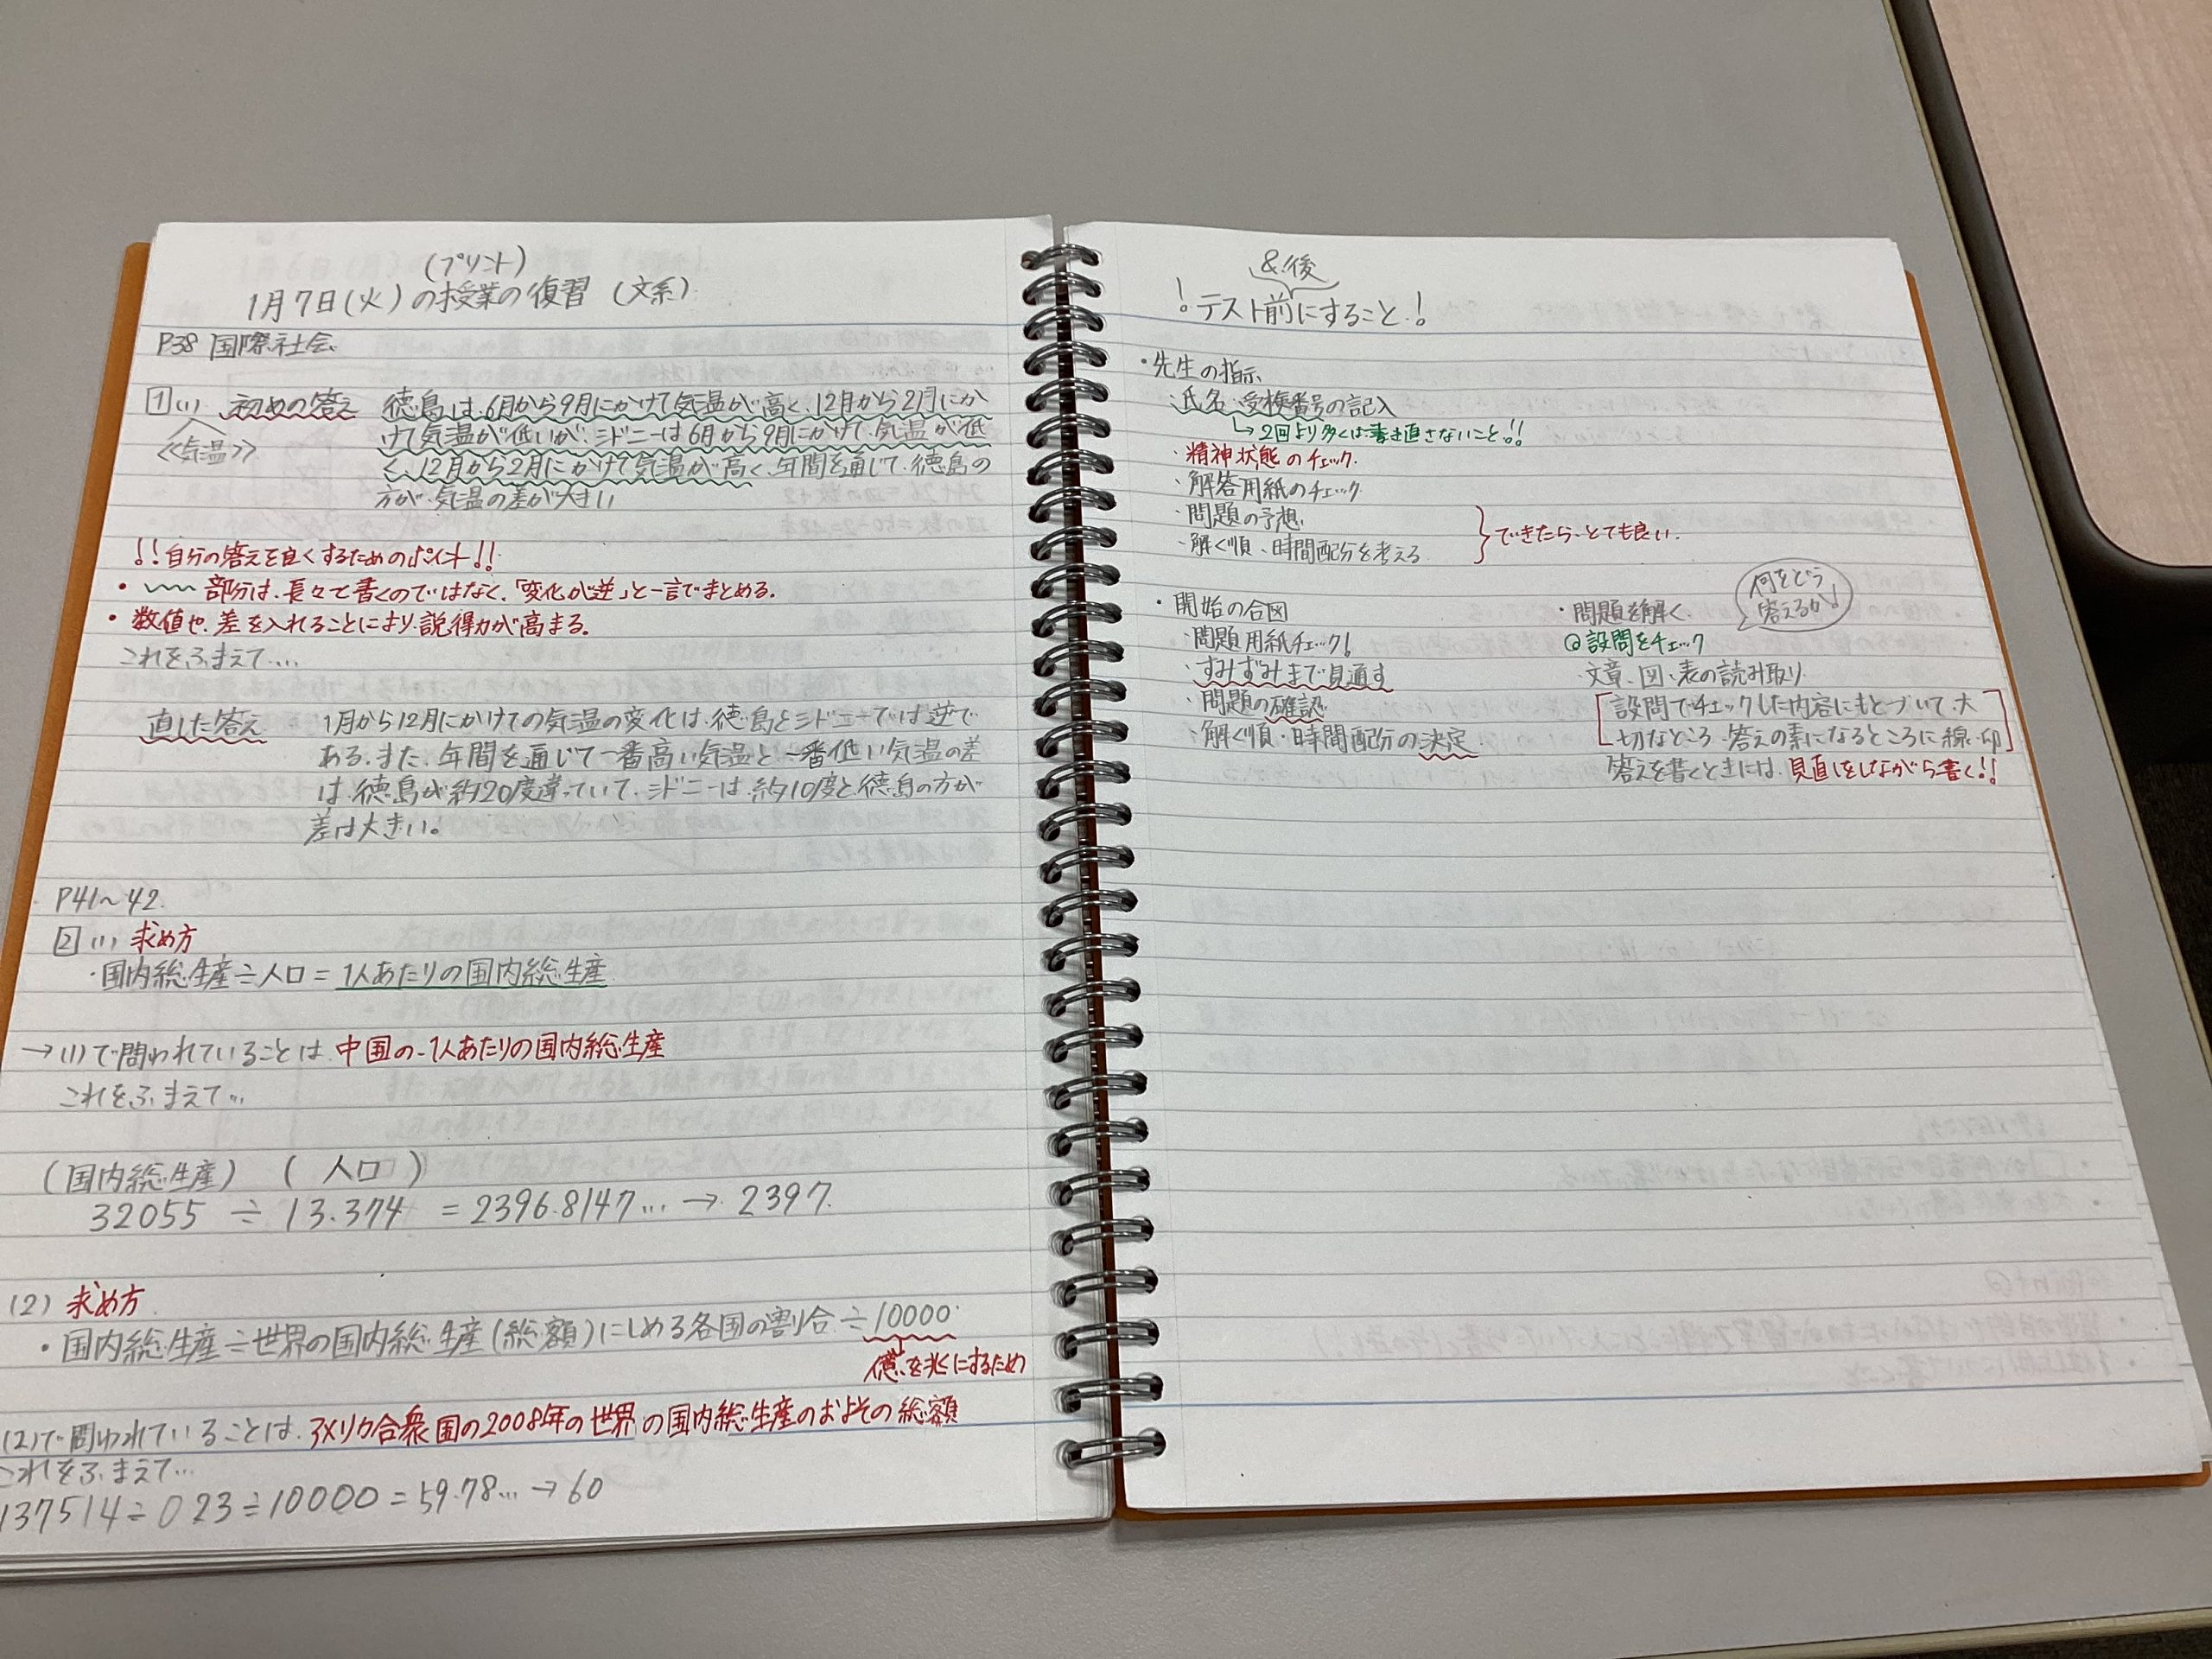 (プリント)
1月7日(火)の授業の復習 (文系)
P38 国際社会
1 (1) 初めの答え 徳島は、6月から9月にかけて気温が高く、12月から2月にか
≪気温≫ けて気温が低いが、シドニーは6月から9月にかけて、気温が低
く、12月から2月にかけて気温が高く、年間を通じて、徳島の
方が、気温の差が大きい
!!自分の答えを良くするためのポイント!!
・〰〰 部分は、長々と書くのではなく、「変化が逆」と一言でまとめる。
・数値や、差を入れることにより、説得力が高まる。
これをふまえて....
直した答え 1月から12月にかけての気温の変化は、徳島とシドニーでは逆で
ある。また、年間を通じて一番高い気温と一番低い気温の差
は、徳島が約20度違っていて、シドニーは、約10度と、徳島の方が
差は大きい。
P41~42
2 (1) 求め方
・国内総生産÷人口=1人あたりの国内総生産
→(1)で問われていることは、中国の、1人あたりの国内総生産
これをふまえて...
(国内総生産) (人口)
32055 ÷ 13.374 = 2396.8147... → 2397.
(2) 求め方
・国内総生産÷世界の国内総生産(総額)にしめる各国の割合÷10000
億を兆にするため
(2)で問われていることは、アメリカ合衆国の2008年の世界の国内総生産のおよその総額
これをふまえて...
137514÷0.23÷10000=59.78...→60
&後
!テスト前にすること!
・先生の指示
・氏名・受検番号の記入
↳2回より多くは書き直さないこと!!
・精神状態のチェック
・解答用紙のチェック
・問題の予想
・解く順、時間配分を考える
できたら、とても良い。
・開始の合図
・問題用紙チェック!
・すみずみまで見通す
・問題の確認
・解く順・時間配分の決定
・問題を解く
何をどう
答えるか!
◎設問をチェック
・文章、図、表の読み取り
[設問でチェックした内容にもとづいて、大
切なところ、答えの素になるところに線・印]
答えを書くときには、見直しをしながら書く!!